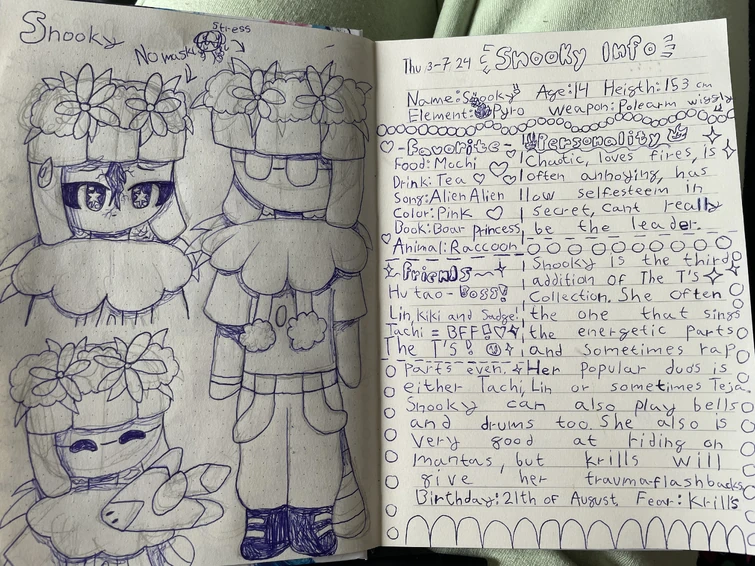 Snooky
Stress
No mask
Thu 3-7 24 Snooky Info
Name: Snooky Age: 14 Heigth: 153 cm
Element: Pyro Weapon: Polearm wiggly
-Favorite-
Food: Mochi
Drink: Tea
Song: Alien Alien
Color: Pink
Book: Boar Princess
Animal: Raccoon
Personality
Chaotic, loves fires, is
often annoying, has
low selfesteem in
secret, Cant really
be the leader.
Friends
Hu tao - Boss!
Lin, Kiki and Sadge!
Tachi = BFF!
The T's!
Snooky is the third
addition of The T's
Collection. She often
the one that sings
the energetic parts
and sometimes rap
Parts even. Her popular duos is
either Tachi, Lin or sometimes Teja
Snooky can also play bells
and drums too. She also is
very good at riding on
mantas, but krills will
give her traumaflashbacks
Birthday: 21th of August Fear: Krills